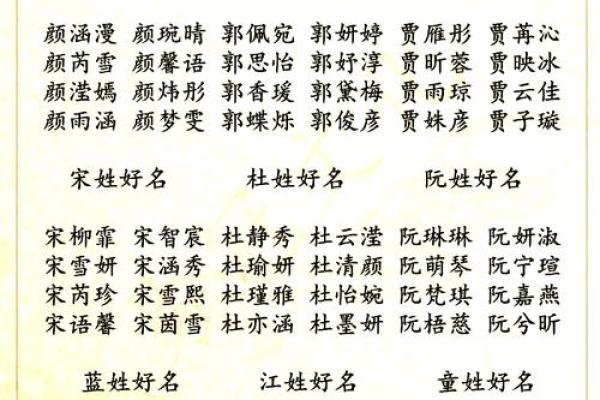 颜涵漫 颜琬晴 郭佩宛 郭妍婷 贾雁彤 贾苒沁
颜芮雪 颜馨语 郭思怡 郭妤淳 贾昕蓉 贾映冰
颜滢嫣 颜炜彤 郭香瑗 郭黛梅 贾雨琼 贾云佳
颜雨涵 颜梦雯 郭蝶烁 郭俊彦 贾姝彦 贾子璇
宋姓好名 杜姓好名 阮姓好名
宋柳霏 宋智宸 杜静秀 杜云滢 阮琳琳 阮妍淑
宋雪妍 宋涵秀 杜瑜妍 杜清颜 阮萌琴 阮宁瑄
宋芮珍 宋雪熙 杜瑾雅 杜怡婉 阮梵琪 阮嘉燕
宋语馨 宋茵雪 杜亦涵 杜墨妍 阮梧慈 阮兮昕
蓝姓好名 江姓好名 童姓好名